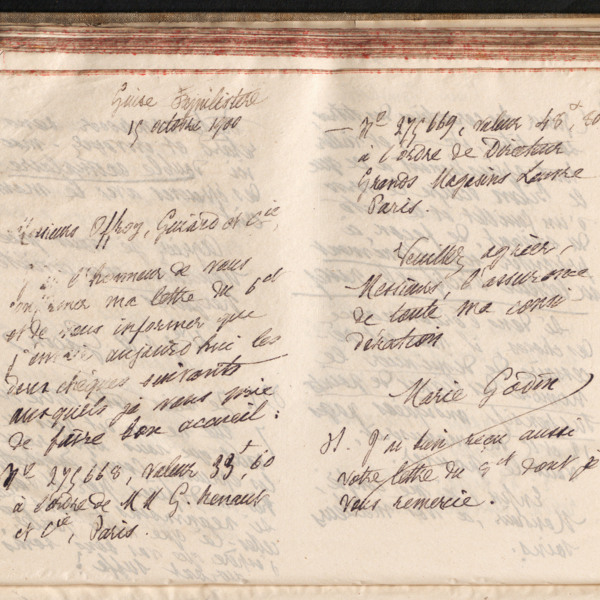 Guise Familistère
15 octobre 1900
Messieurs Offroy, Guiard et Cie,
l'honneur de vous
confirmer ma lettre du 6 ct
et de vous informer que
j'envoie aujourd'hui les
deux chèques suivants
auxquels je vous prie
de faire bon accueil :
No 275668, valeur 33f,60
à l'ordre de MM G. henault
et Cie, Paris.
— No 275669, valeur 48f,80
à l'ordre de Directeur
Grands Magasins Louvre
Paris.
Veuillez agréer,
Messieurs, l'assurance
de toute ma consi
dération
Marie Godin
J'ai bien reçu aussi
votre lettre du 9 ct dont je
vous remercie.